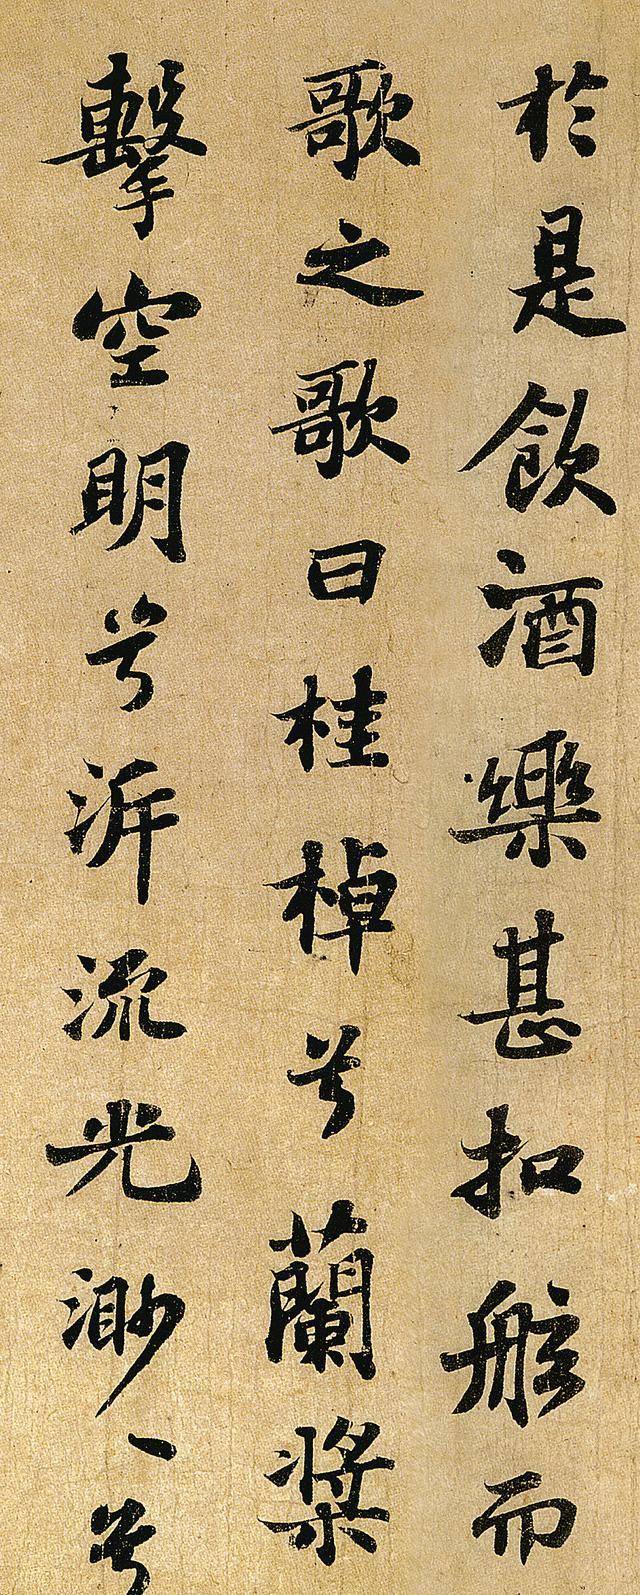 於是飲酒樂甚扣舷而
歌之歌曰桂棹兮蘭槳
擊空明兮泝流光渺〻兮